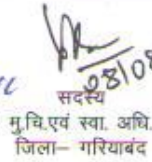 08/08
सदस्य
मु.चि.एवं स्वा. अधि.
जिला– गरियाबंद